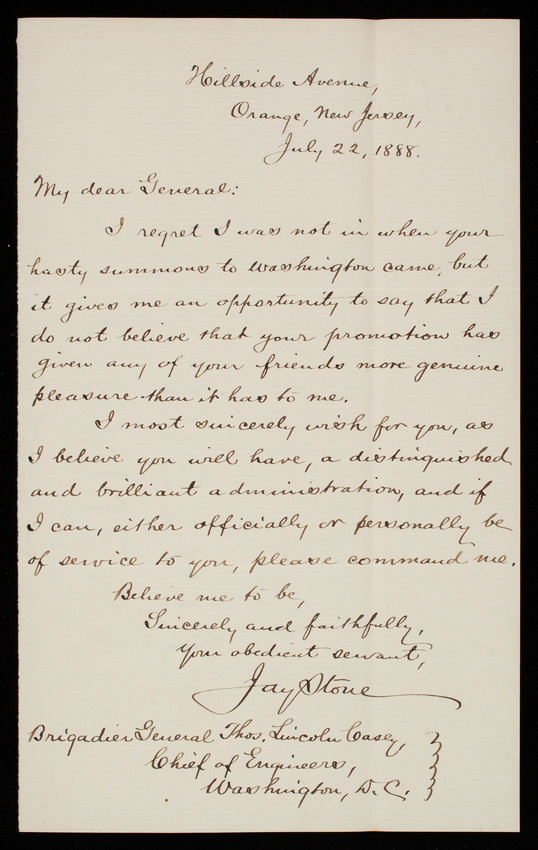 Hillside Avenue,
Orange, New Jersey,
July 22, 1888.
My dear General:
I regret I was not in when your
hasty summons to Washington came, but
it gives me an opportunity to say that I
do not believe that your promotion has
given any of your friends more genuine
pleasure than it has to me.
I most sincerely wish for you, as
I believe you will have, a distinguished
and brilliant administration, and if
I can, either officially or personally be
of service to you, please command me.
Believe me to be,
Sincerely and faithfully,
Your obedient servant,
Jay Stone
Brigadier General Thos. Lincoln Casey,
Chief of Engineers,
Washington, D.C.